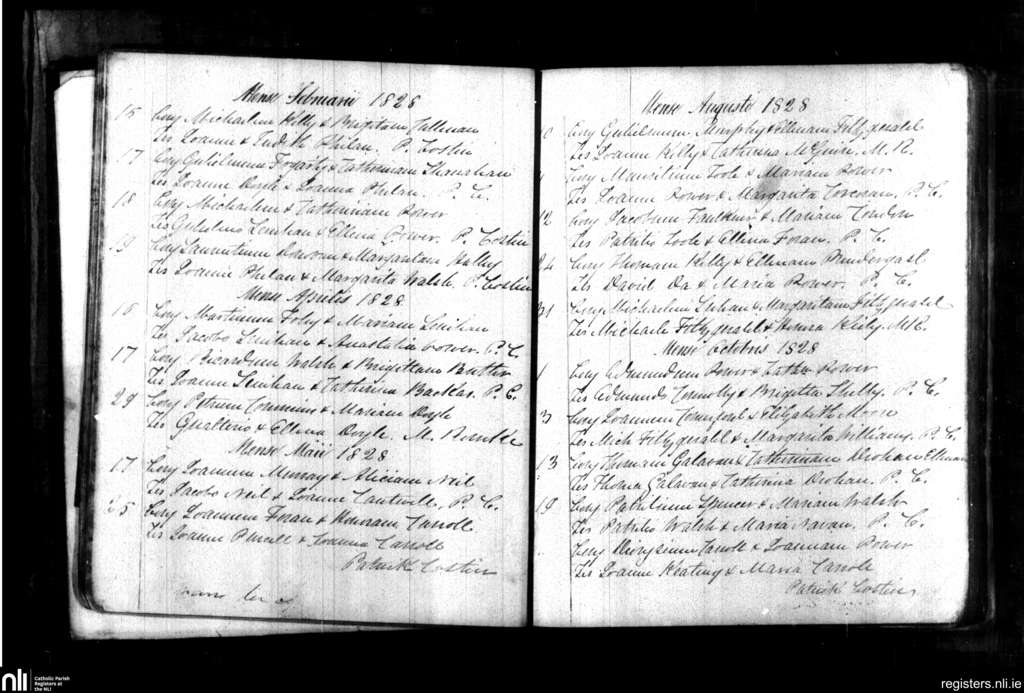 Mense Februarii 1828
15 Conj Michaelem Kelly & Brigitam Tillman
Tes Joanne & Judith Philan. P. Costin
17 Conj Gulielmum Fogarty & Catherinam Shanahan
Tes Joanne Doyle & Joanna Phelan. P. C.
18 Conj Michaelem & Catherinam Power
Tes Gulielmo Lenihan & Ellena Power. P. Costin
19 Conj Laurentium & Margaritam Kelly
Tes Joanne Philan & Margarita Walsh. P. Costin
Mense Aprilis 1828
15 Conj Martinum Foley & Mariam Linihan
Tes Jacobo Linihan & Anastatia Power. P. C.
17 Conj Ricardum Walsh & Brigittam Butler
Tes Joanne Linihan & Catherina Backas. P. C.
29 Conj Petrum Commins & Mariam Doyle
Tes Gualtero & Ellena Doyle. M. Rourke
Mense Maii 1828
17 Conj Joannem Murray & Aliciam Neil
Tes Jacobo Neil & Joanna Cantwell. P. C.
25 Conj Joannem Foran & Honoram Carroll
Tes Joanne Purcell & Joanna Carroll
Patrick Costin
Mense Augusti 1828
10 Conj Gulielmum Murphy & Ellenam Fitzgerald
Tes Joanne Kelly & Catherina McGuire. M. R.
Conj Mauritium Toole & Mariam Power
Tes Joanne Power & Margarita Corcoran. P. C.
12 Conj Jacobum Faulkner & Mariam Condon
Tes Patritio Toole & Ellena Foran. P. C.
24 Conj Thomam Kelly & Ellenam Prendergast
Tes David Da & Maria Power. P. C.
31 Conj Michaelem & Margaritam Fitzgerald
Tes Michaele Fitzgerald & Honora Kiely. M. R.
Mense Octobris 1828
1 Conj Edmundum Power & Cath Power
Tes Edmundo Connolly & Brigitta Shelly. P. C.
3 Conj Joannem Comerford & Elizabeth Moore
Tes Mich Fitzgerald & Margarita Williams. P. C.
13 Conj Thomam Galavan & Catherinam Drohan Ellenam
Tes Thoma Galavan & Catherina Drohan. P. C.
19 Conj Patritium Spencer & Mariam Walsh
Tes Patritio Walsh & Maria Navan. P. C.
Conj Dionysium Carroll & Joannam Power
Tes Joanne Keating & Maria Carroll
Patrick Costin
nli
Catholic Parish
Registers at
the NLI
registers.nli.ie